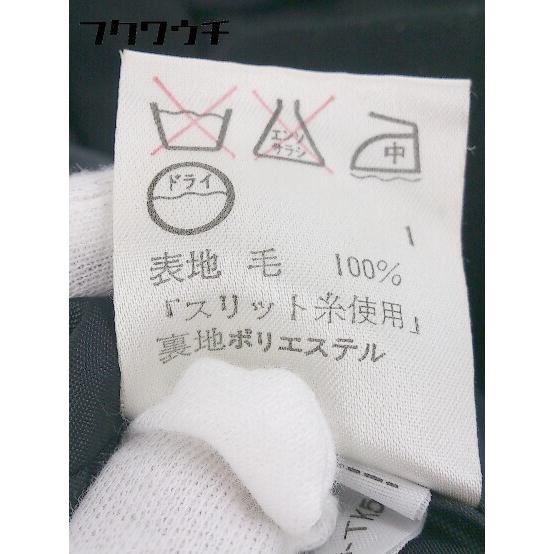 フクワウチ
エンソ
サラシ
中
ドライ
1
表地 毛 100%
『スリット糸使用』
裏地ポリエステル